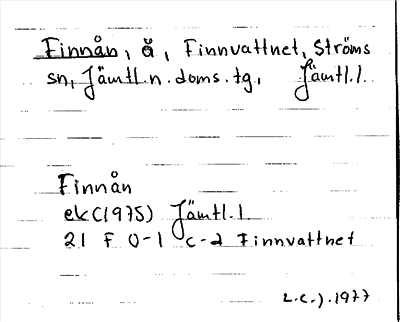 Finnån, å, Finnvattnet, Ströms
sn, Jämtl.n.doms.tg, Jämtl.l.
Finnån
ek(1975) Jämtl.l
21 F 0-1 c-d Finnvattnet
L.C.J.1977